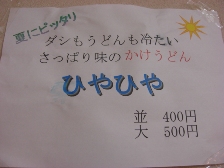 夏にピッタリ
ダシもうどんも冷たい
さっぱり味のかけうどん
ひやひや
並 400円
大 500円